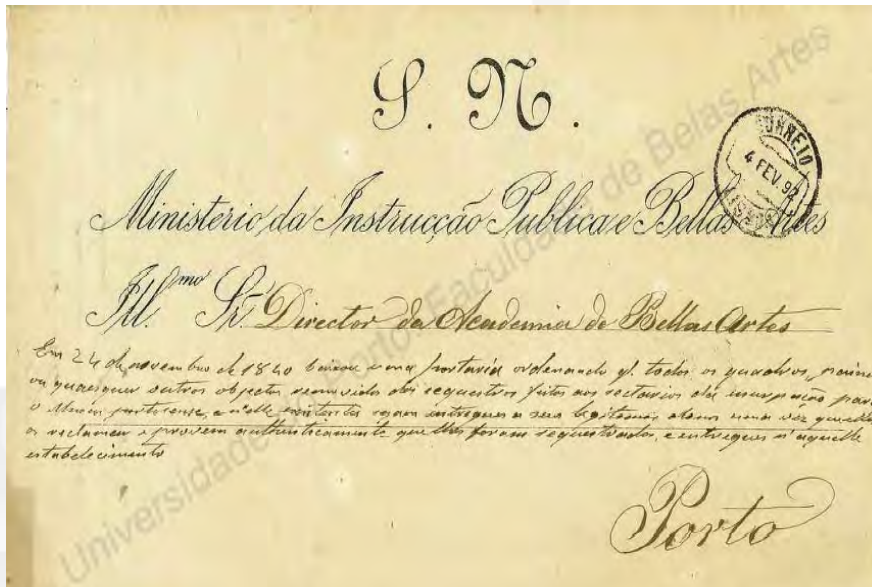 S. N.
CORREIO
4 FEV. 92
LISBOA
Ministerio da Instrucção Publica e Bellas Artes
Ill.mo Sr. Director da Academia de Bellas Artes
Em 24 de novembro de 1840 baixou uma portaria ordenando q. todos os quadros,
ou quaesquer outros objectos removidos dos sequestros feitos aos sectarios da usurpação para
o Museu portuense, e n'elle existentes sejam entregues a seus legitimos donos uma vez que elles
os reclamem e provem authenticamente que lhes foram sequestrados, e entregues n'aquelle
estabelecimento
Porto
Universidade do Porto, Faculdade de Belas Artes